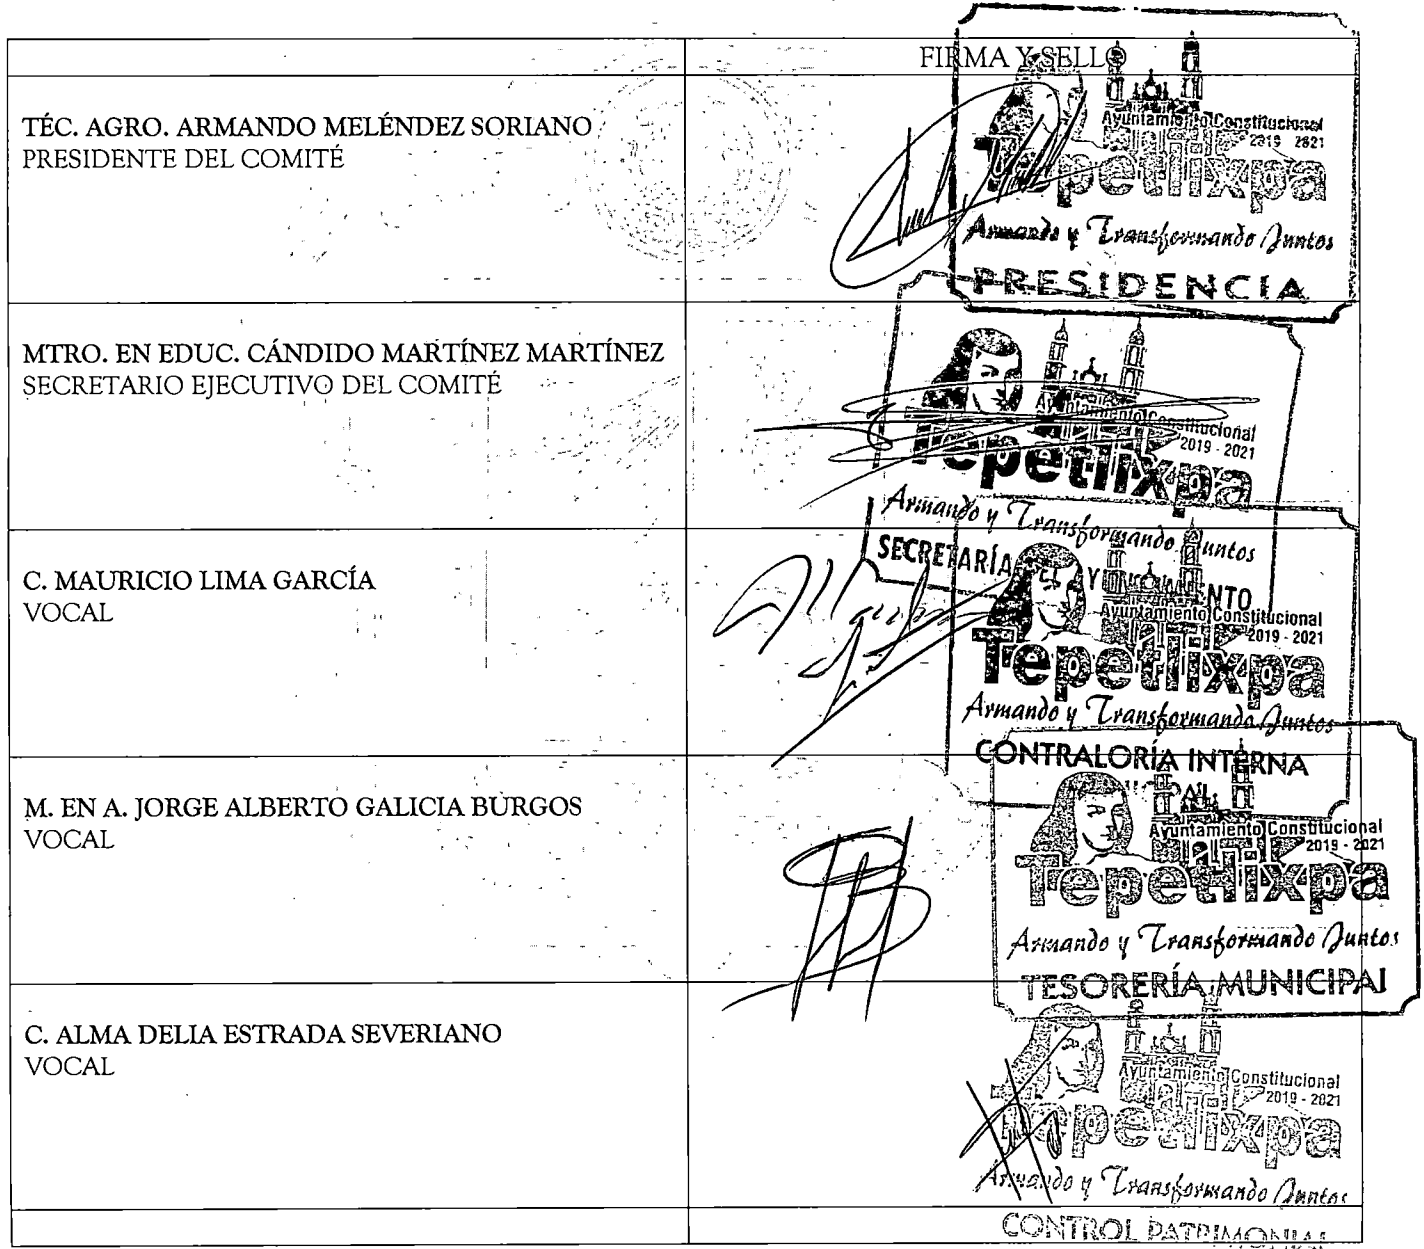 FIRMA Y SELLO
TÉC. AGRO. ARMANDO MELÉNDEZ SORIANO
PRESIDENTE DEL COMITÉ
Ayuntamiento Constitucional
2019 2021
Tepetlixpa
Armando y Transformando Juntos
PRESIDENCIA
MTRO. EN EDUC. CÁNDIDO MARTÍNEZ MARTÍNEZ
SECRETARIO EJECUTIVO DEL COMITÉ
Ayuntamiento Constitucional
2019 - 2021
Tepetlixpa
Armando y Transformando Juntos
SECRETARÍA
C. MAURICIO LIMA GARCÍA
VOCAL
Ayuntamiento Constitucional
2019 - 2021
Tepetlixpa
Armando y Transformando Juntos
CONTRALORÍA INTERNA
M. EN A. JORGE ALBERTO GALICIA BURGOS
VOCAL
Ayuntamiento Constitucional
2019 - 2021
Tepetlixpa
Armando y Transformando Juntos
TESORERÍA MUNICIPAL
C. ALMA DELIA ESTRADA SEVERIANO
VOCAL
Ayuntamiento Constitucional
2019 - 2021
Tepetlixpa
Armando y Transformando Juntos
CONTROL PATRIMONIAL